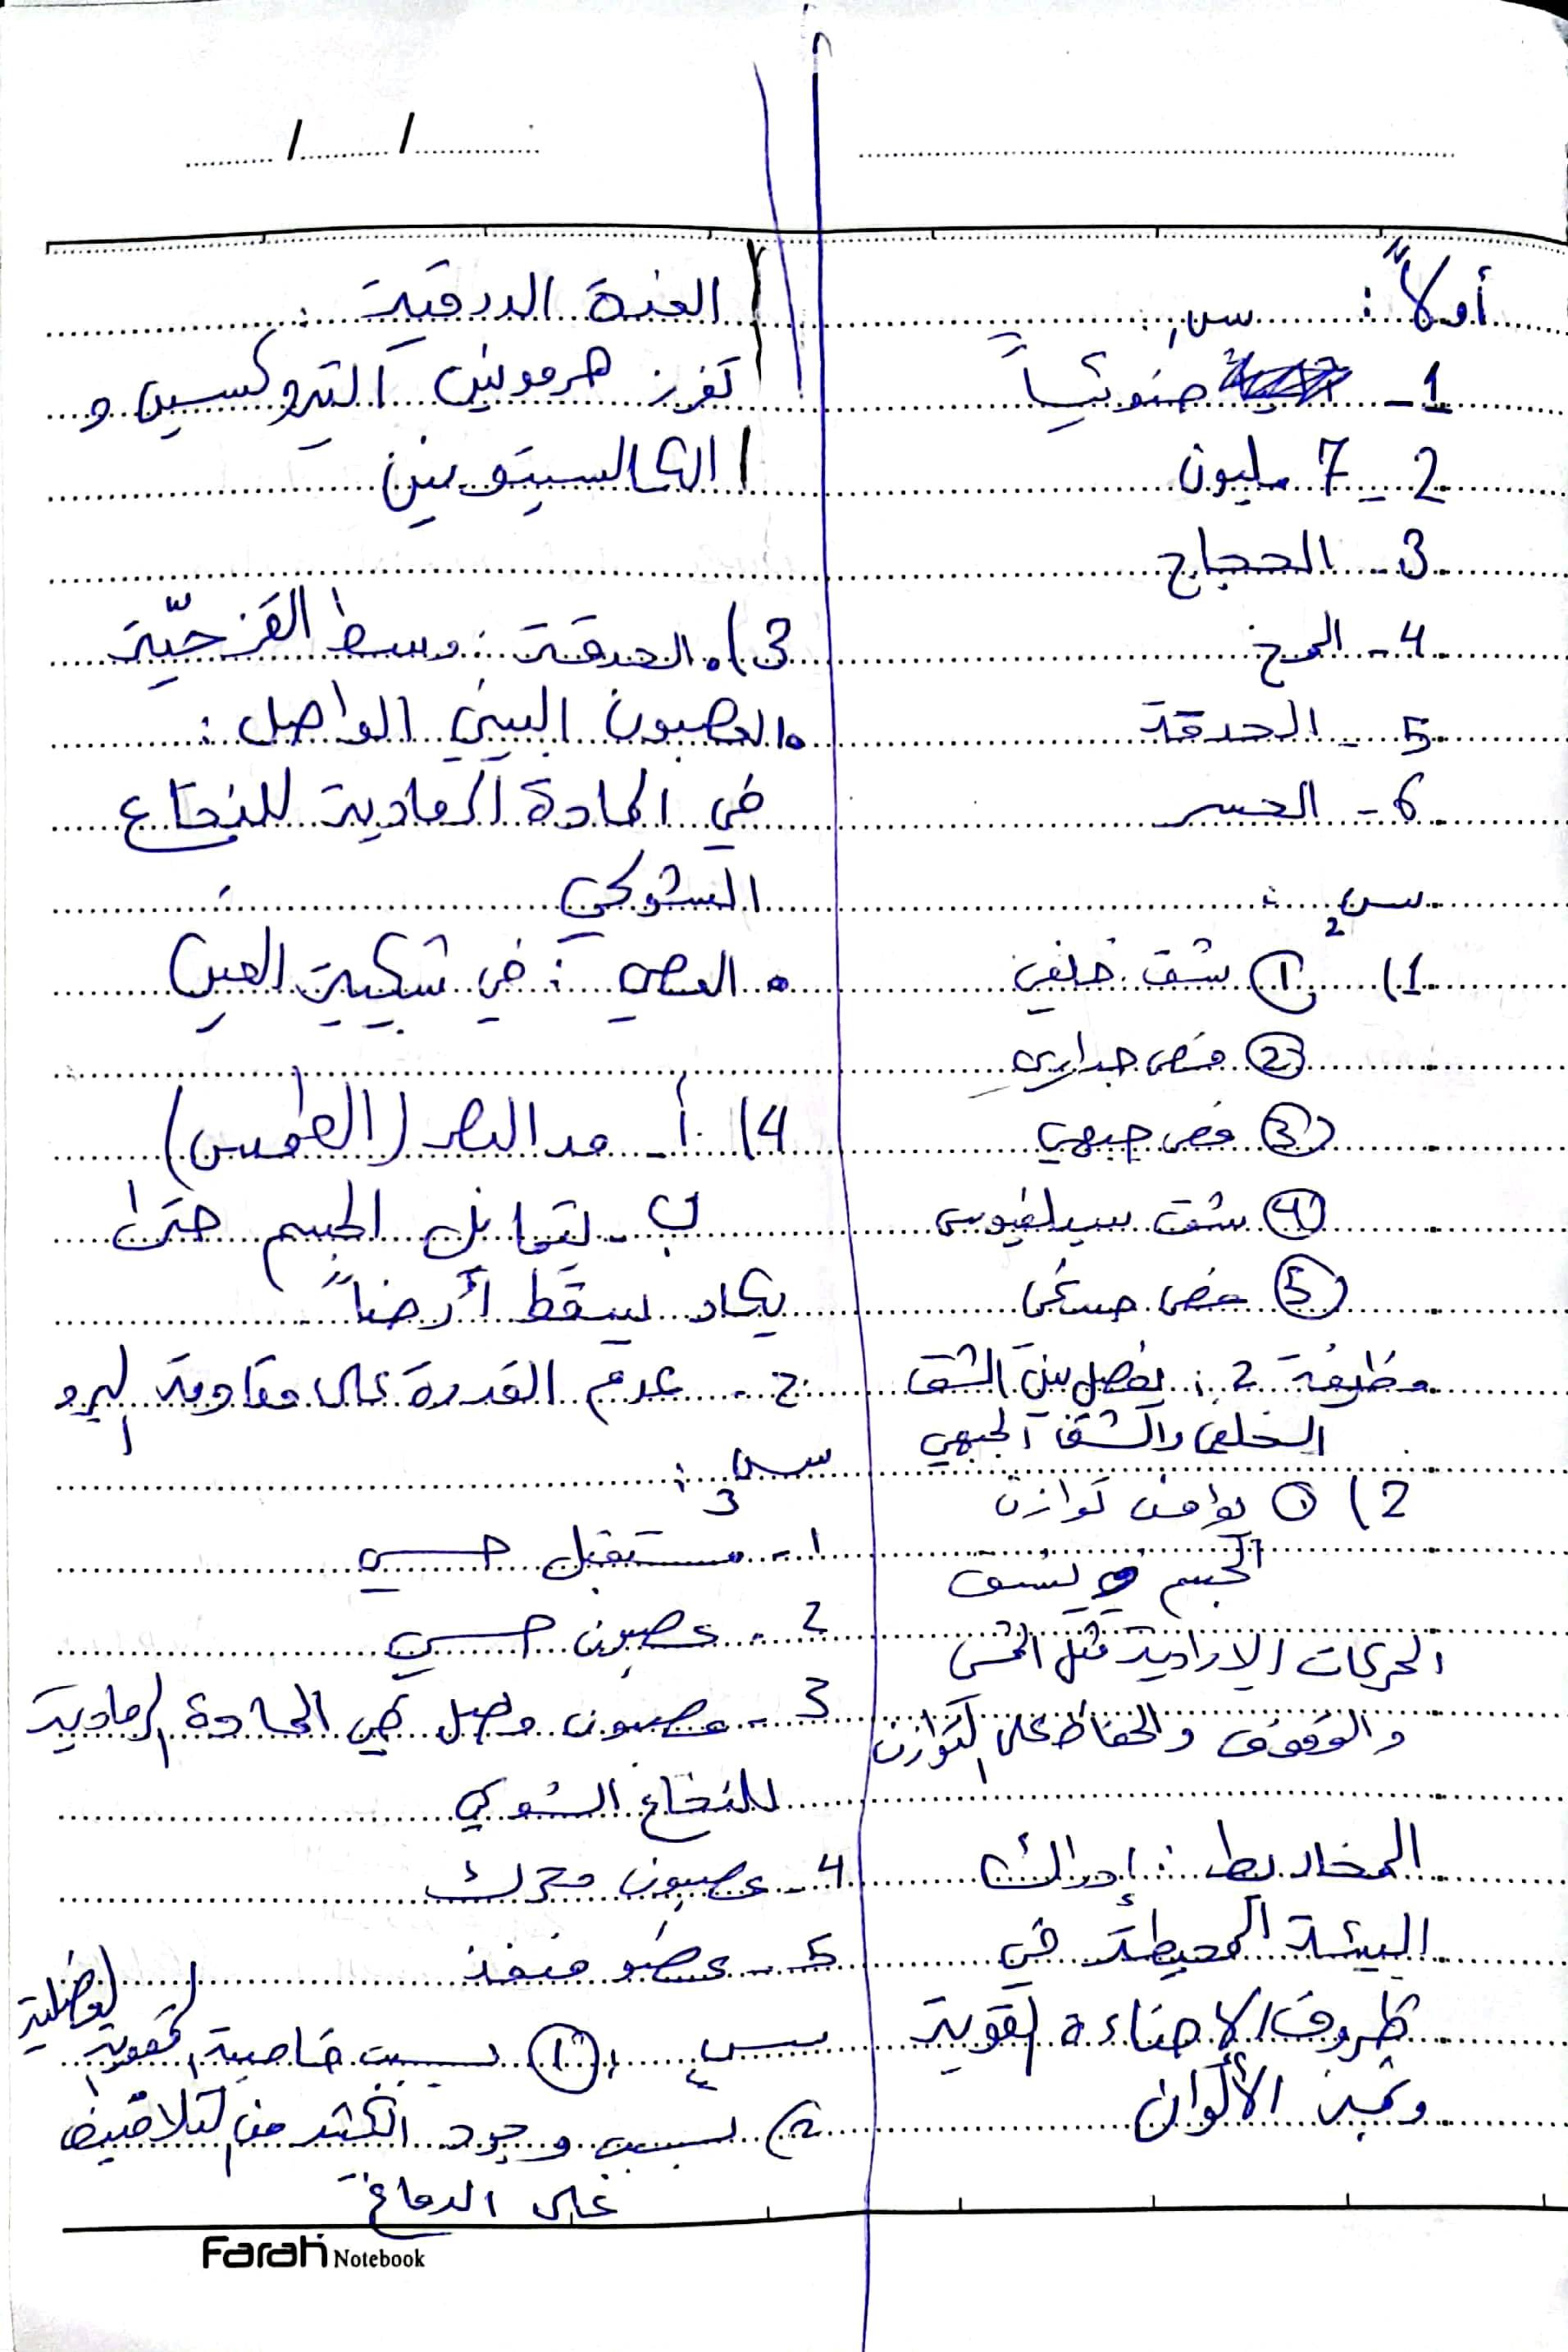 أولاً : س1 :
1- ضوئياً
2- 7 مليون
3- الحجاج
4- المخ
5- الحدقة
6- الجسر
س2 :
1) ① شق خلفي
② فص جداري
③ فص جبهي
④ شق سيلفيوس
⑤ فص صدغي
وظيفة 2 : يفصل بين الشق
الخلفي والشق الجبهي
2) ① يؤمن توازن
الجسم وينسق
الحركات الارادية مثل المشي
والوقوف والحفاظ على التوازن
المخاريط : إدراك
البيئة المحيطة في
ظروف الإضاءة القوية
وتمييز الألوان
الغدة الدرقية :
تفرز هرمونين التيروكسين و
الكالسيتونين
3) • الحدقة : وسط القزحيّة
• العصبون البيني الواصل :
في المادة الرمادية للنخاع
الشوكي
• العصي : في شبكية العين
4) أ - مد البصر (الطمس)
ب - لتمايل الجسم حتى
يكاد يسقط أرضاً
ج - عدم القدرة على مقاومة البرد
س3 :
1- مستقبل حسي
2- عصبون حسي
3- عصبون وصل في المادة الرمادية
للنخاع الشوكي
4- عصبون محرك
5- عضو منفذ
س4 : ① بسبب خاصية المقوية العضلية
2) بسبب وجود الكثير من التلافيف
على الدماغ
Farah Notebook